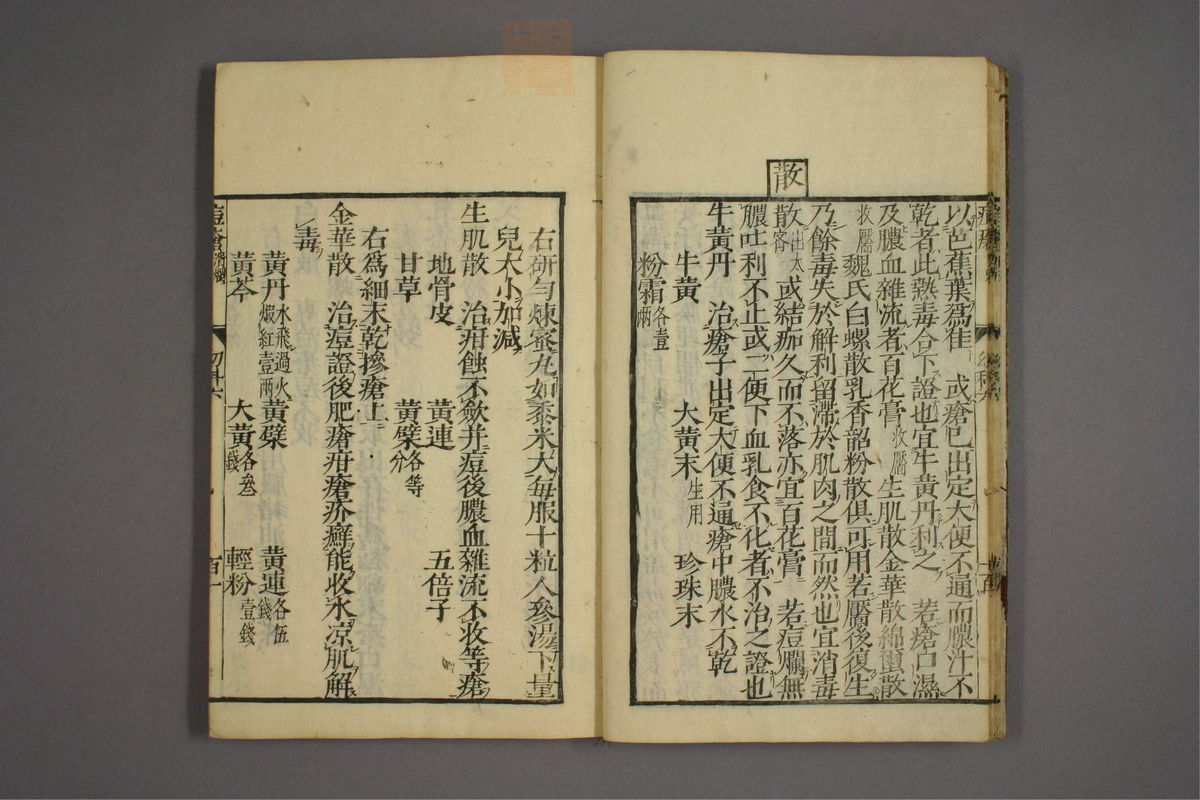 散
以芭蕉葉爲佳　或瘡已出定大便不通而膿汁不
乾者此熱毒合下證也宜牛黃丹利之　若瘡口濕
及膿血雜流者百花膏收靨生肌散金華散綿繭散
收靨魏氏白螺散乳香韶粉散俱可用若靨後復生
乃餘毒失於解利留滯於肌肉之間而然也宜消毒
散出太窌或結痂久而不落亦宜百花膏　若痘爛無
膿吐利不止或二便下血乳食不化者不治之證也
牛黃丹　治瘡子出定大便不通瘡中膿水不乾
牛黃　大黃末生用　珍珠末
粉霜各壹兩
右研勻煉蜜丸如黍米大每服十粒人參湯下量
兒大小加減
生肌散　治疳蝕不斂并痘後膿血雜流不收等瘡
地骨皮　黃連　五倍子
甘草　黃檗各等分
右爲細末乾摻瘡上
金華散　治痘證後肥瘡疳瘡疥癬能收水凉肌解
毒
黃丹水飛過火煅紅壹兩　黃檗　黃連各伍錢
黃芩　大黃各叁錢　輕粉壹錢
幼科六　百一